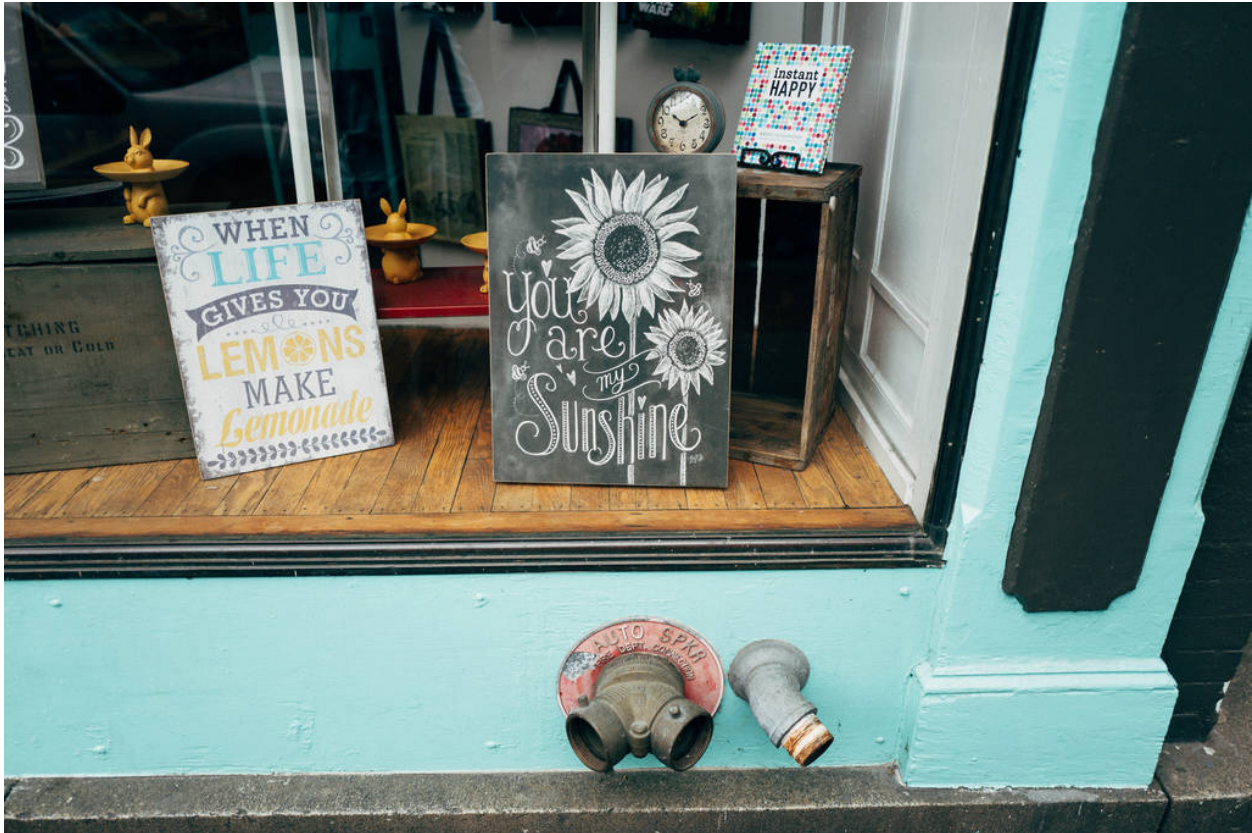 WARS
instant
HAPPY
WHEN
LIFE
GIVES YOU
LEMONS
MAKE
Lemonade
You
are
my
Sunshine
TCHING
EAT OR COLD
AUTO SPKR
FIRE DEPT. CONNECTION